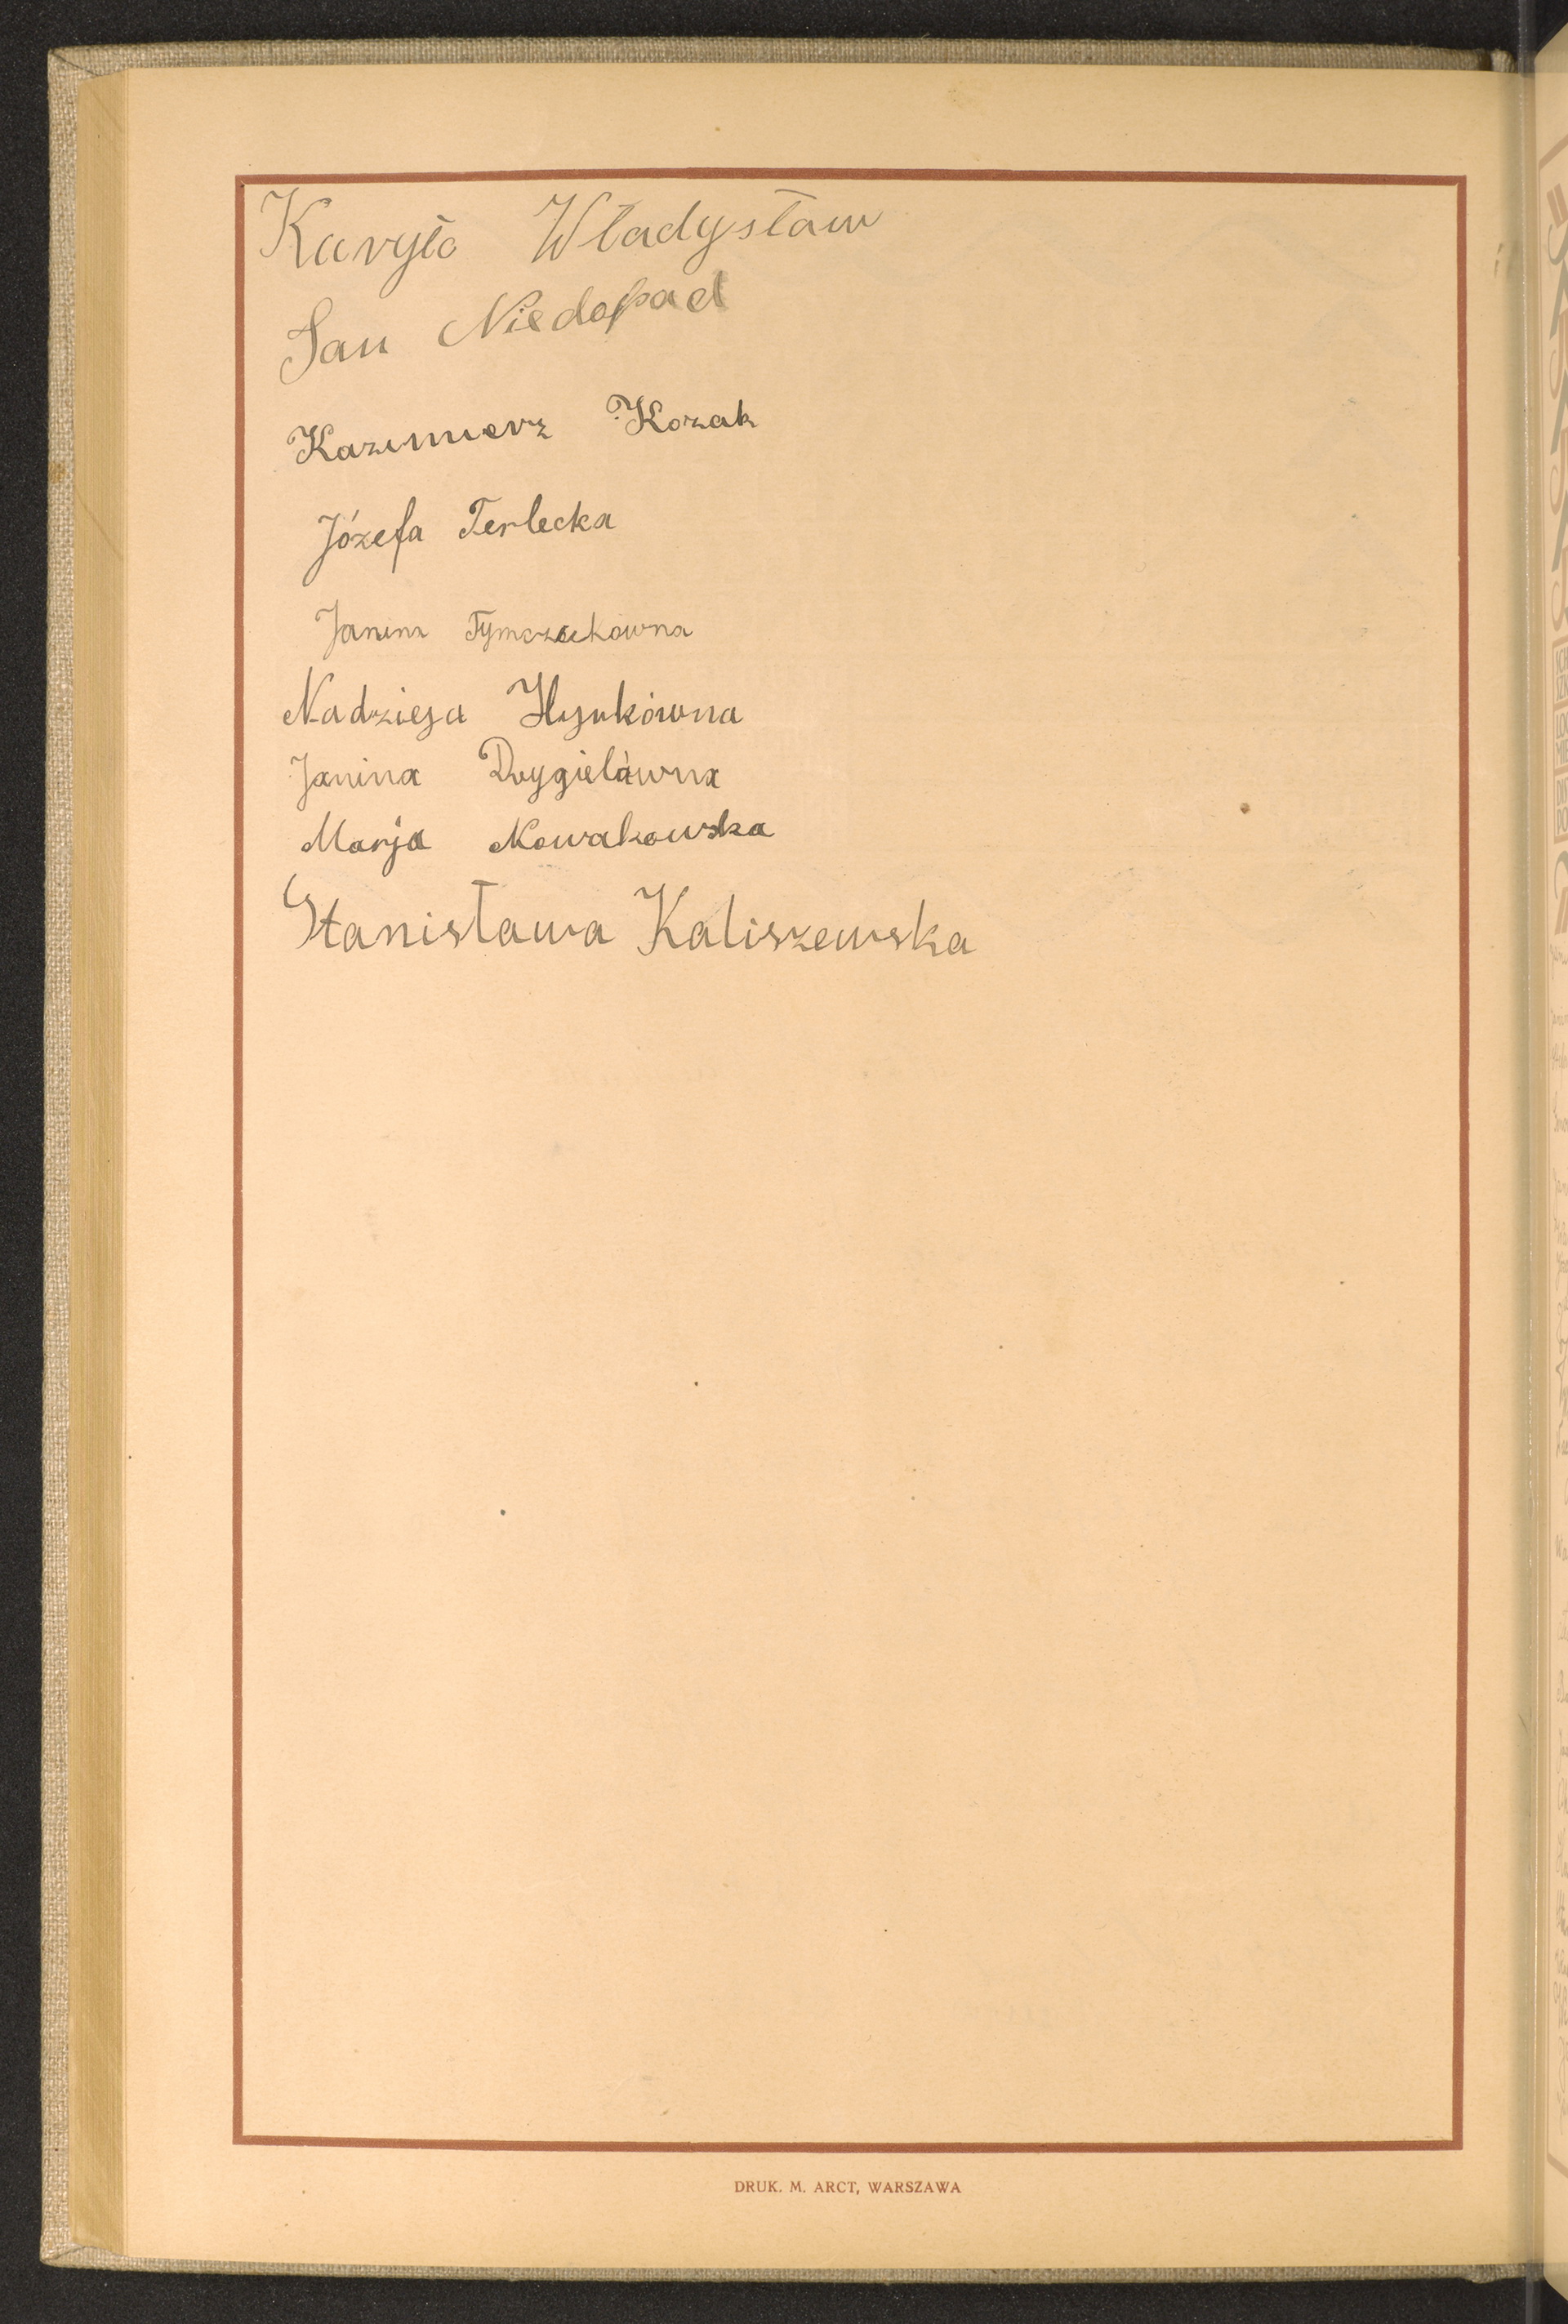 Kuryło Władysław
Jan Niedopad
Kazimierz Kozak
Józefa Terlecka
Janina Tymczukowna
Nadzieja
Janina Drygielówna
Marja Nowakowska
Stanisława Kaliszewska
DRUK. M. ARCT, WARSZAWA